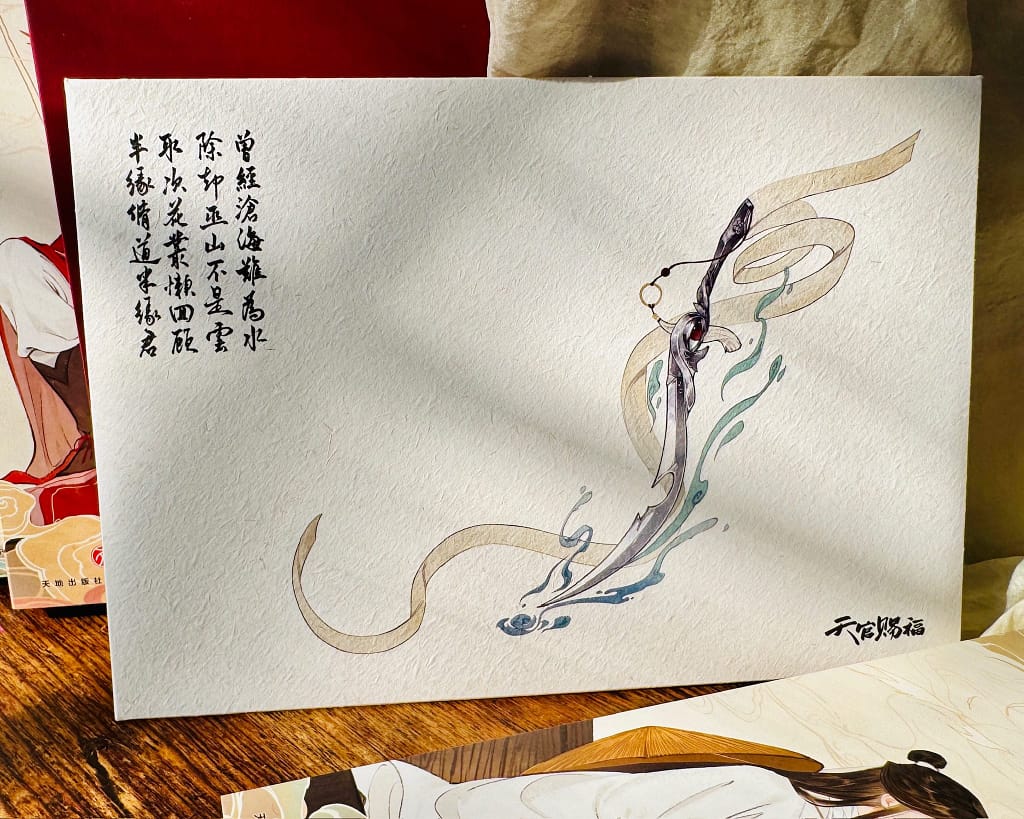 曾經滄海難為水
除却巫山不是雲
取次花叢懶回顧
半緣脩道半緣君
天官赐福
天地出版社